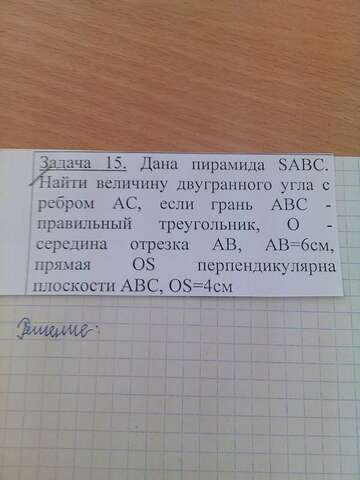 Задача 15. Дана пирамида SABC.
Найти величину двугранного угла с
ребром AC, если грань ABC -
правильный треугольник, O -
середина отрезка AB, AB=6см,
прямая OS перпендикулярна
плоскости ABC, OS=4см
Решение: